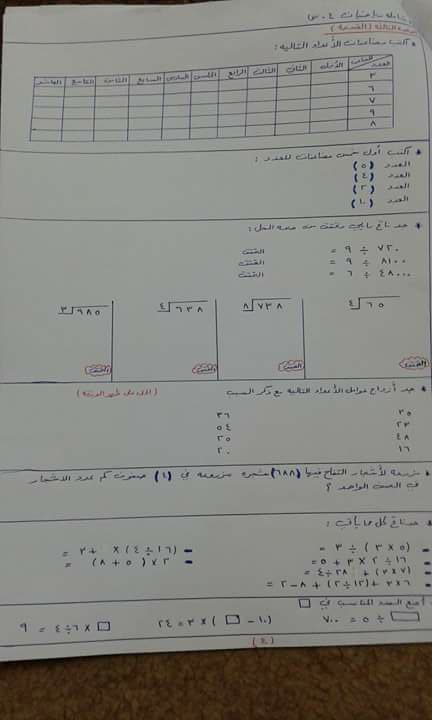 * اكتب مضاعفات الأعداد التالية :
العدد الأول الثاني الثالث الرابع الخامس السادس السابع الثامن التاسع العاشر
٣
٦
٧
٩
٨
* اكتب أول خمس مضاعفات للعدد :
العدد (٥)
العدد (٤)
العدد (٢)
العدد (١٠)
* جد ناتج ما يلي وتحقق من صحة الحل :
٧٢٠ ÷ ٩ = التحقق
٨١٠٠ ÷ ٩ = التحقق
٤٨٠٠٠ ÷ ٦ = التحقق
٤ ٦٥
٨ ٧٣٨
٤ ٦٣٨
٣ ٦٨٥
التحقق التحقق التحقق التحقق
* جد أزواج عوامل الأعداد التالية مع ذكر السبب (الحل على ظهر الورقة)
٣٥ ٣٦
٢٣ ٥٤
٤٨ ٢٥
١٦ ٢٠
* مزرعة لأشجار التفاح فيها (٦٨٨) شجرة مزروعة في (٤) صفوف كم عدد الأشجار
في الصف الواحد ؟
* جد ناتج كل مما يأتي :
(٥ × ٣) ÷ ٣ = (١٦ ÷ ٤) × ٣ + =
١٦ ÷ ٢ × ٣ + ٥ = ٢ × (٥ + ٨) =
(٧ × ٣) + ٢٨ ÷ ٤ =
٦ × ٣ + (١٢ ÷ ٢) + ٨ − ٢ =
ضع العدد المناسب في □
□ ÷ ٥ = ٧٠٠ (١٠ − □) × ٣ = ٢٤ □ × ٦ ÷ ٤ = ٩